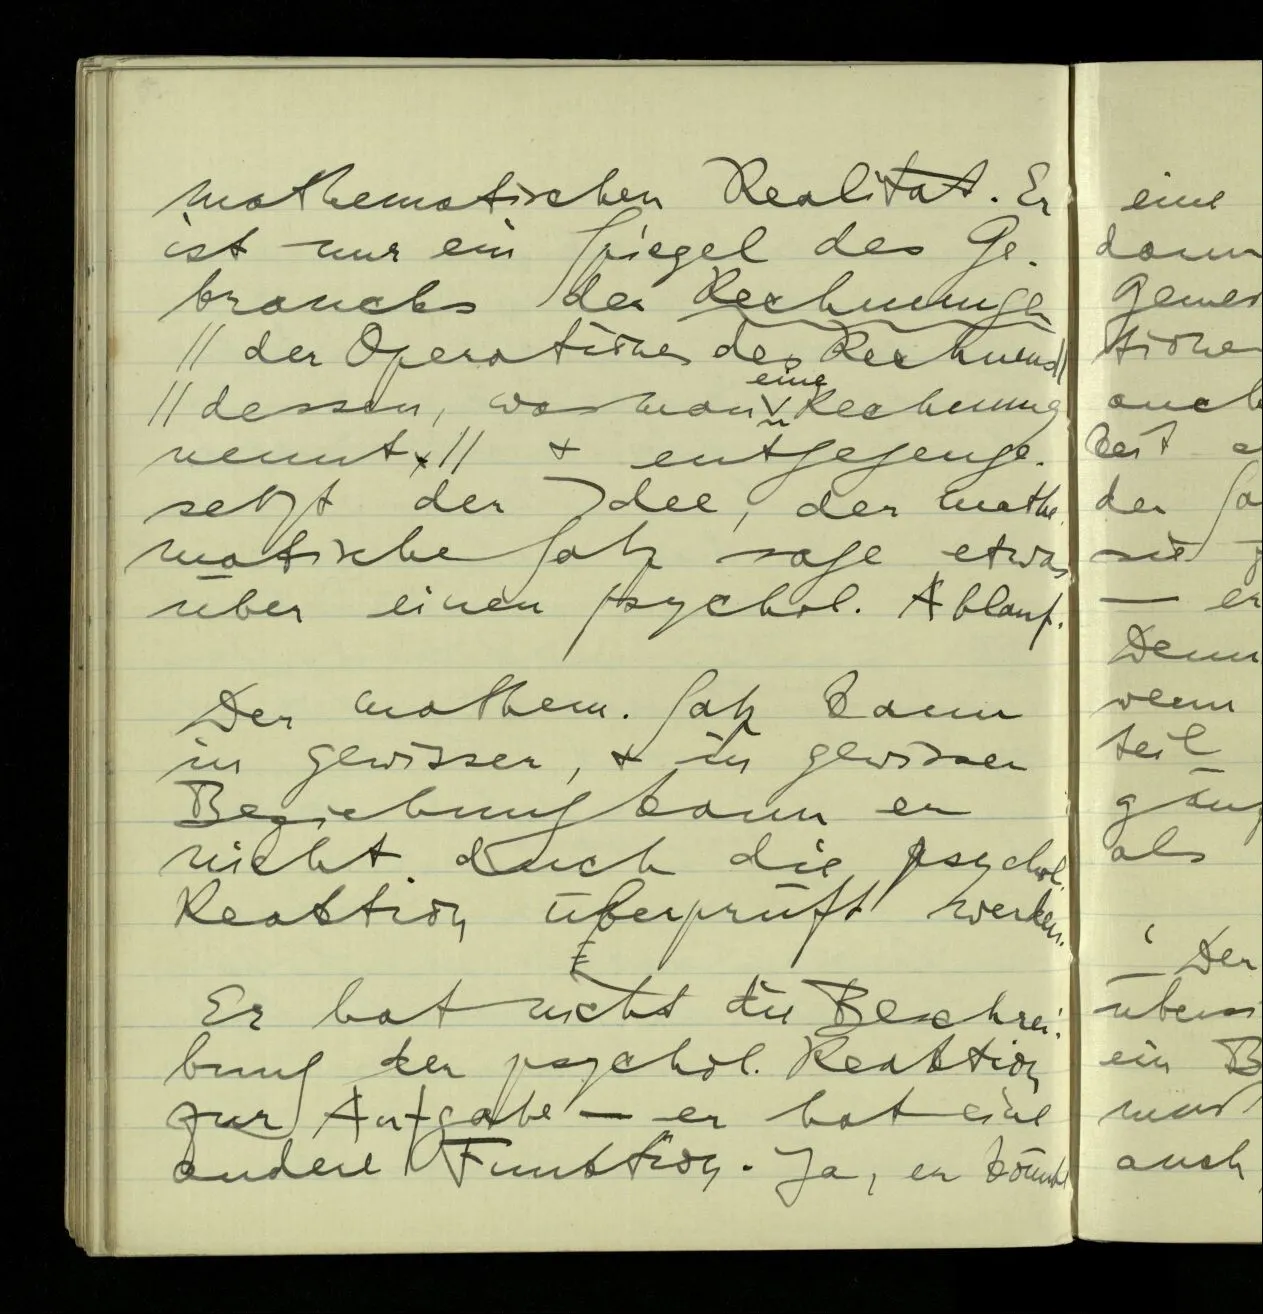 mathematischen Realität. Er
ist nur ein Spiegel des Ge-
brauchs der Rechnungen
// der Operationen des Rechnens//
eine
// dessen, was man Rechnung
nennt // + entgegenge-
setzt der Idee, der mathe-
matische Satz sage etwas
über einen psychol. Ablauf.
Der mathem. Satz kann
in gewisser, + in gewisser
Beziehung kann er
nicht durch die psychol.
Reaktion überprüft werden.
Er hat nicht die Beschrei-
bung der psychol. Reaktion
zur Aufgabe — er hat eine
andere Funktion. Ja, er könnte
eine
dann
tione
auch
der
sie
— er
Denn
wenn
teil
als
Der
ein B
auch